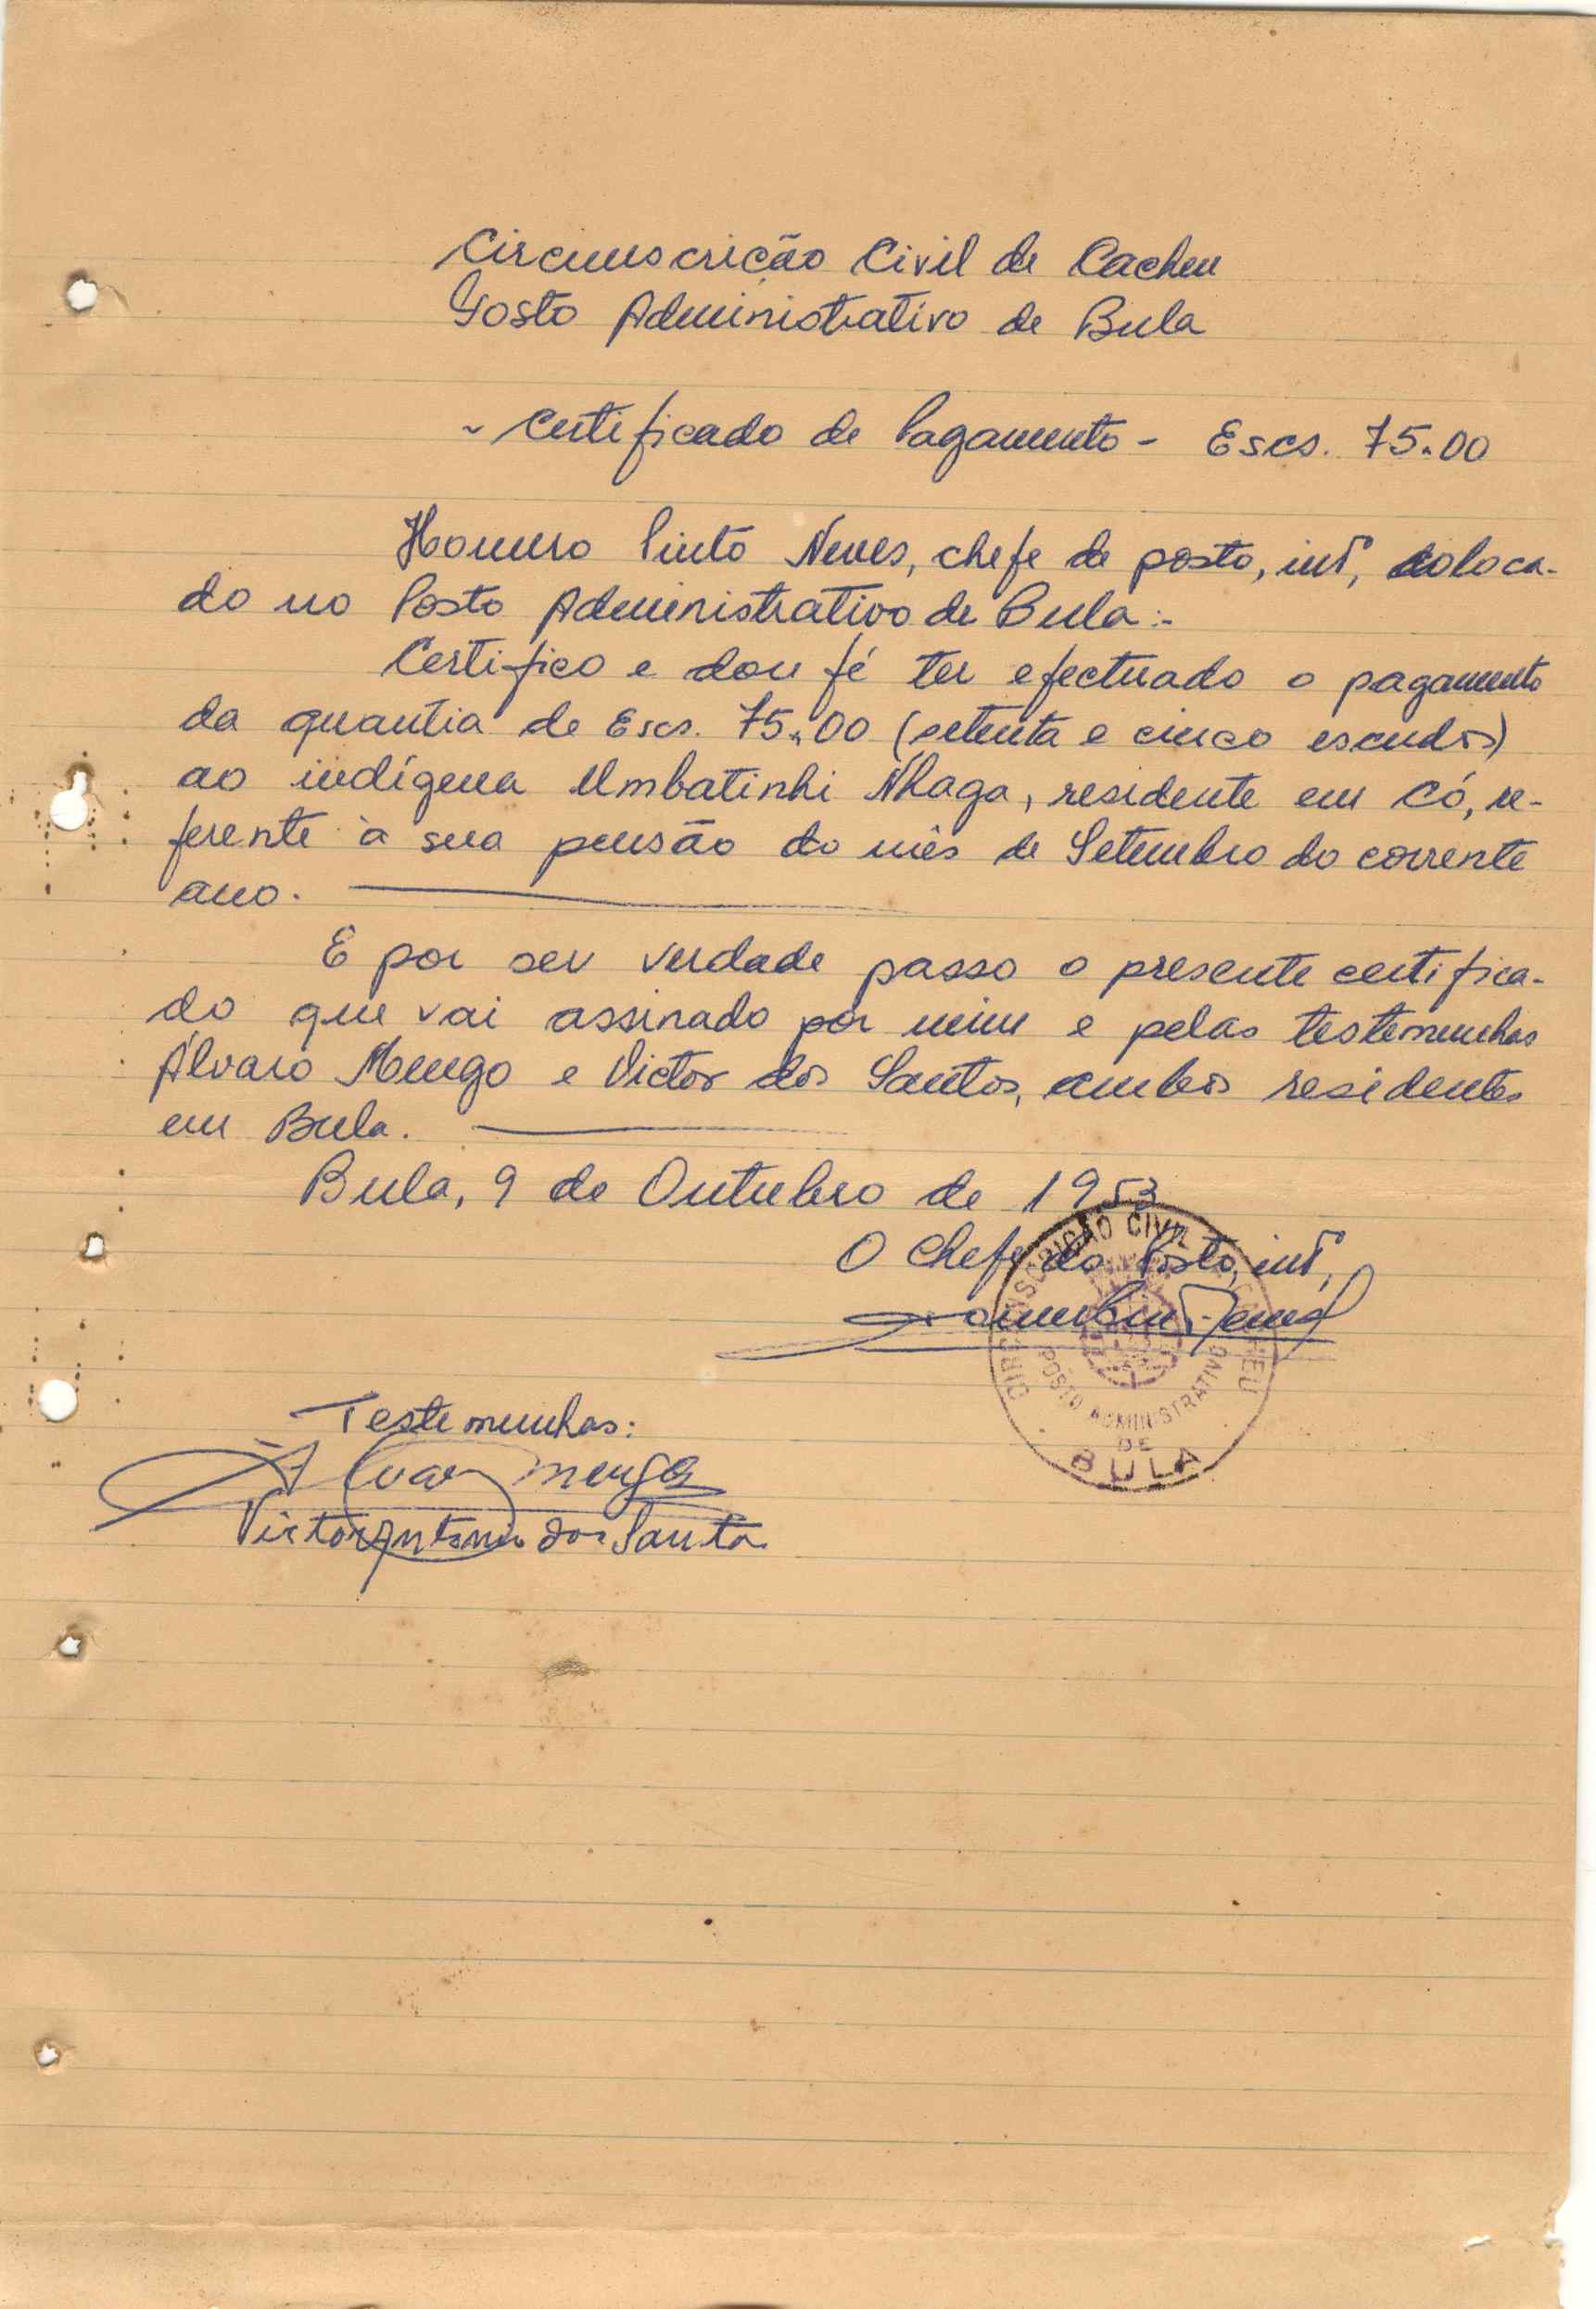 Circunscrição Civil de Cacheu
Posto Administrativo de Bula
- Certificado de Pagamento - Escs. 75.00
Homero Pinto Neves, chefe de posto, intº, coloca-
do no Posto Administrativo de Bula:-
Certifico e dou fé ter efectuado o pagamento
da quantia de Escs. 75.00 (setenta e cinco escudos)
ao indígena Umbatinhi Nhaga, residente em Có, re-
ferente à sua pensão do mês de Setembro do corrente
ano.
E por ser verdade passo o presente certifica-
do que vai assinado por mim e pelas testemunhas
Álvaro Mengo e Victor dos Santos, ambos residentes
em Bula.
Bula, 9 de Outubro de 1953
O Chefe do Posto, intº,
CIRCUNSCRIÇÃO CIVIL DE CACHEU
POSTO ADMINISTRATIVO
DE
BULA
Testemunhas:
Alvaro Mengo
Victor Antonio dos Santos